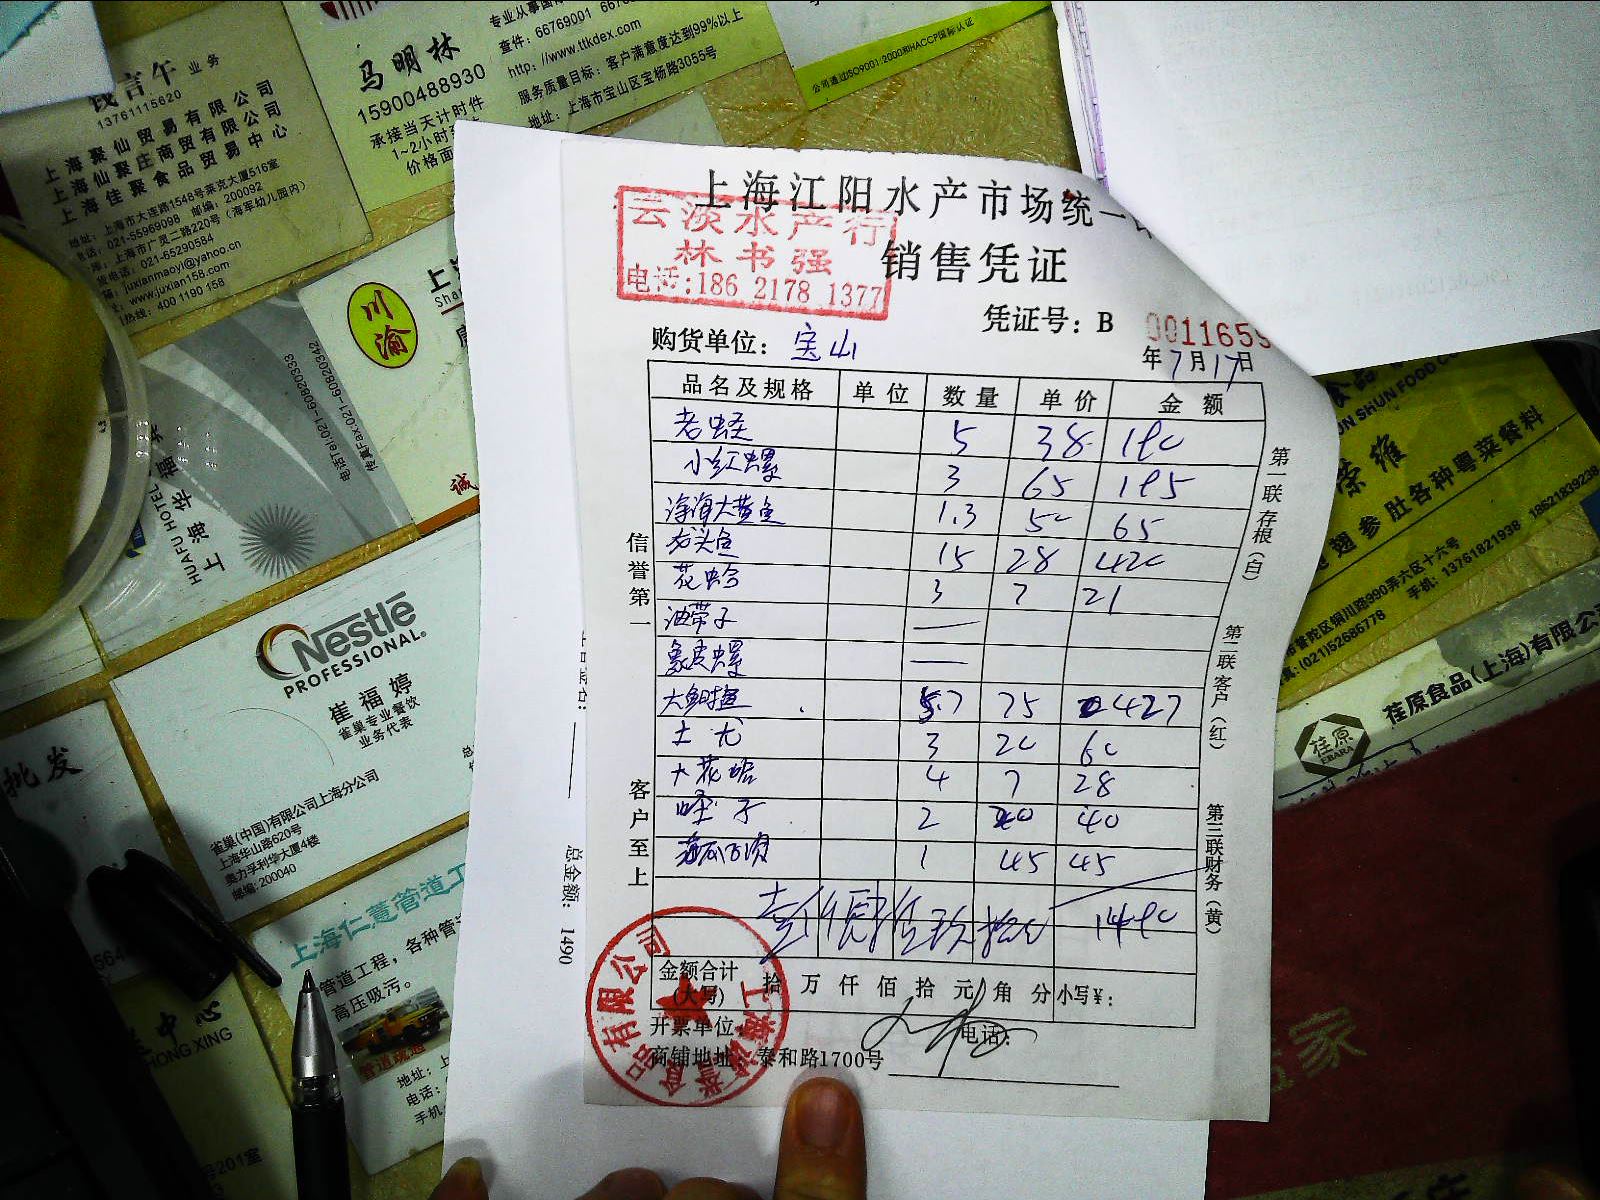 钱言午 业务
13761115620
上海聚仙贸易有限公司
上海仙聚庄商贸有限公司
上海佳聚食品贸易中心
地址：上海市大连路1548号莱克大厦516室
电话：021-55969098 邮编：200092
库：上海市广灵二路220号（海军幼儿园内）
货电话：021-65290584
箱：juxianmaoyi@yahoo.cn
www.juxian-158.com
热线：400 1190 158
马明林
15900488930
承接当天计时件
1~2小时
价格面
专业从事国
查件：66769001
http://www.ttkdex.com
服务质量目标：客户满意度达到99%以上
地址：上海市宝山区宝杨路3055号
公司通过ISO9001:2000和HACCP国际认证
川渝
上海
诚
电话Tel.021-60820333
传真Fax:021-60820342
HUAFU HOTEL
上海华
Nestlé
PROFESSIONAL.
崔福婷
雀巢专业餐饮
业务代表
雀巢(中国)有限公司上海分公司
上海华山路620号
奥力孚利华大厦4楼
邮编：200040
批发
上海仁薏管道工
管道工程，各种管
高压吸污。
管道疏通
地址：上
电话：
手机
中心
HONG XING
号201室
总金额： 1490
上海江阳水产市场统一
销售凭证
云淡水产行
林书强
电话:186 2178 1377
凭证号：B 0011655
购货单位：宝山
年7月17日
品名及规格 单位 数量 单价 金额
老蛏 5 38 190
小红螺 3 65 195
深海大黄鱼 1.3 50 65
老头鱼 15 28 420
花蛤 3 7 21
油带子 —
象皮螺 —
5.7 75 427
土尤 3 20 60
大花蛤 4 7 28
蛏子 2 20 40
海瓜子 1 45 45
壹仟肆佰玖拾元 1490
金额合计
(大写) 拾万仟佰拾元角分 小写¥：
开票单位 电话：
商铺地址： 泰和路1700号
信誉第一
客户至上
第一联存根（白）
第二联客户（红）
第三联财务（黄）
UN SHUN FOOD CO
荣维
翅参肚各种粤菜餐料
普陀区铜川路990弄六区十六号
(021)52686778 手机：13761821938 18621839238
荏原食品(上海)有限公
荏原
EBARA
家